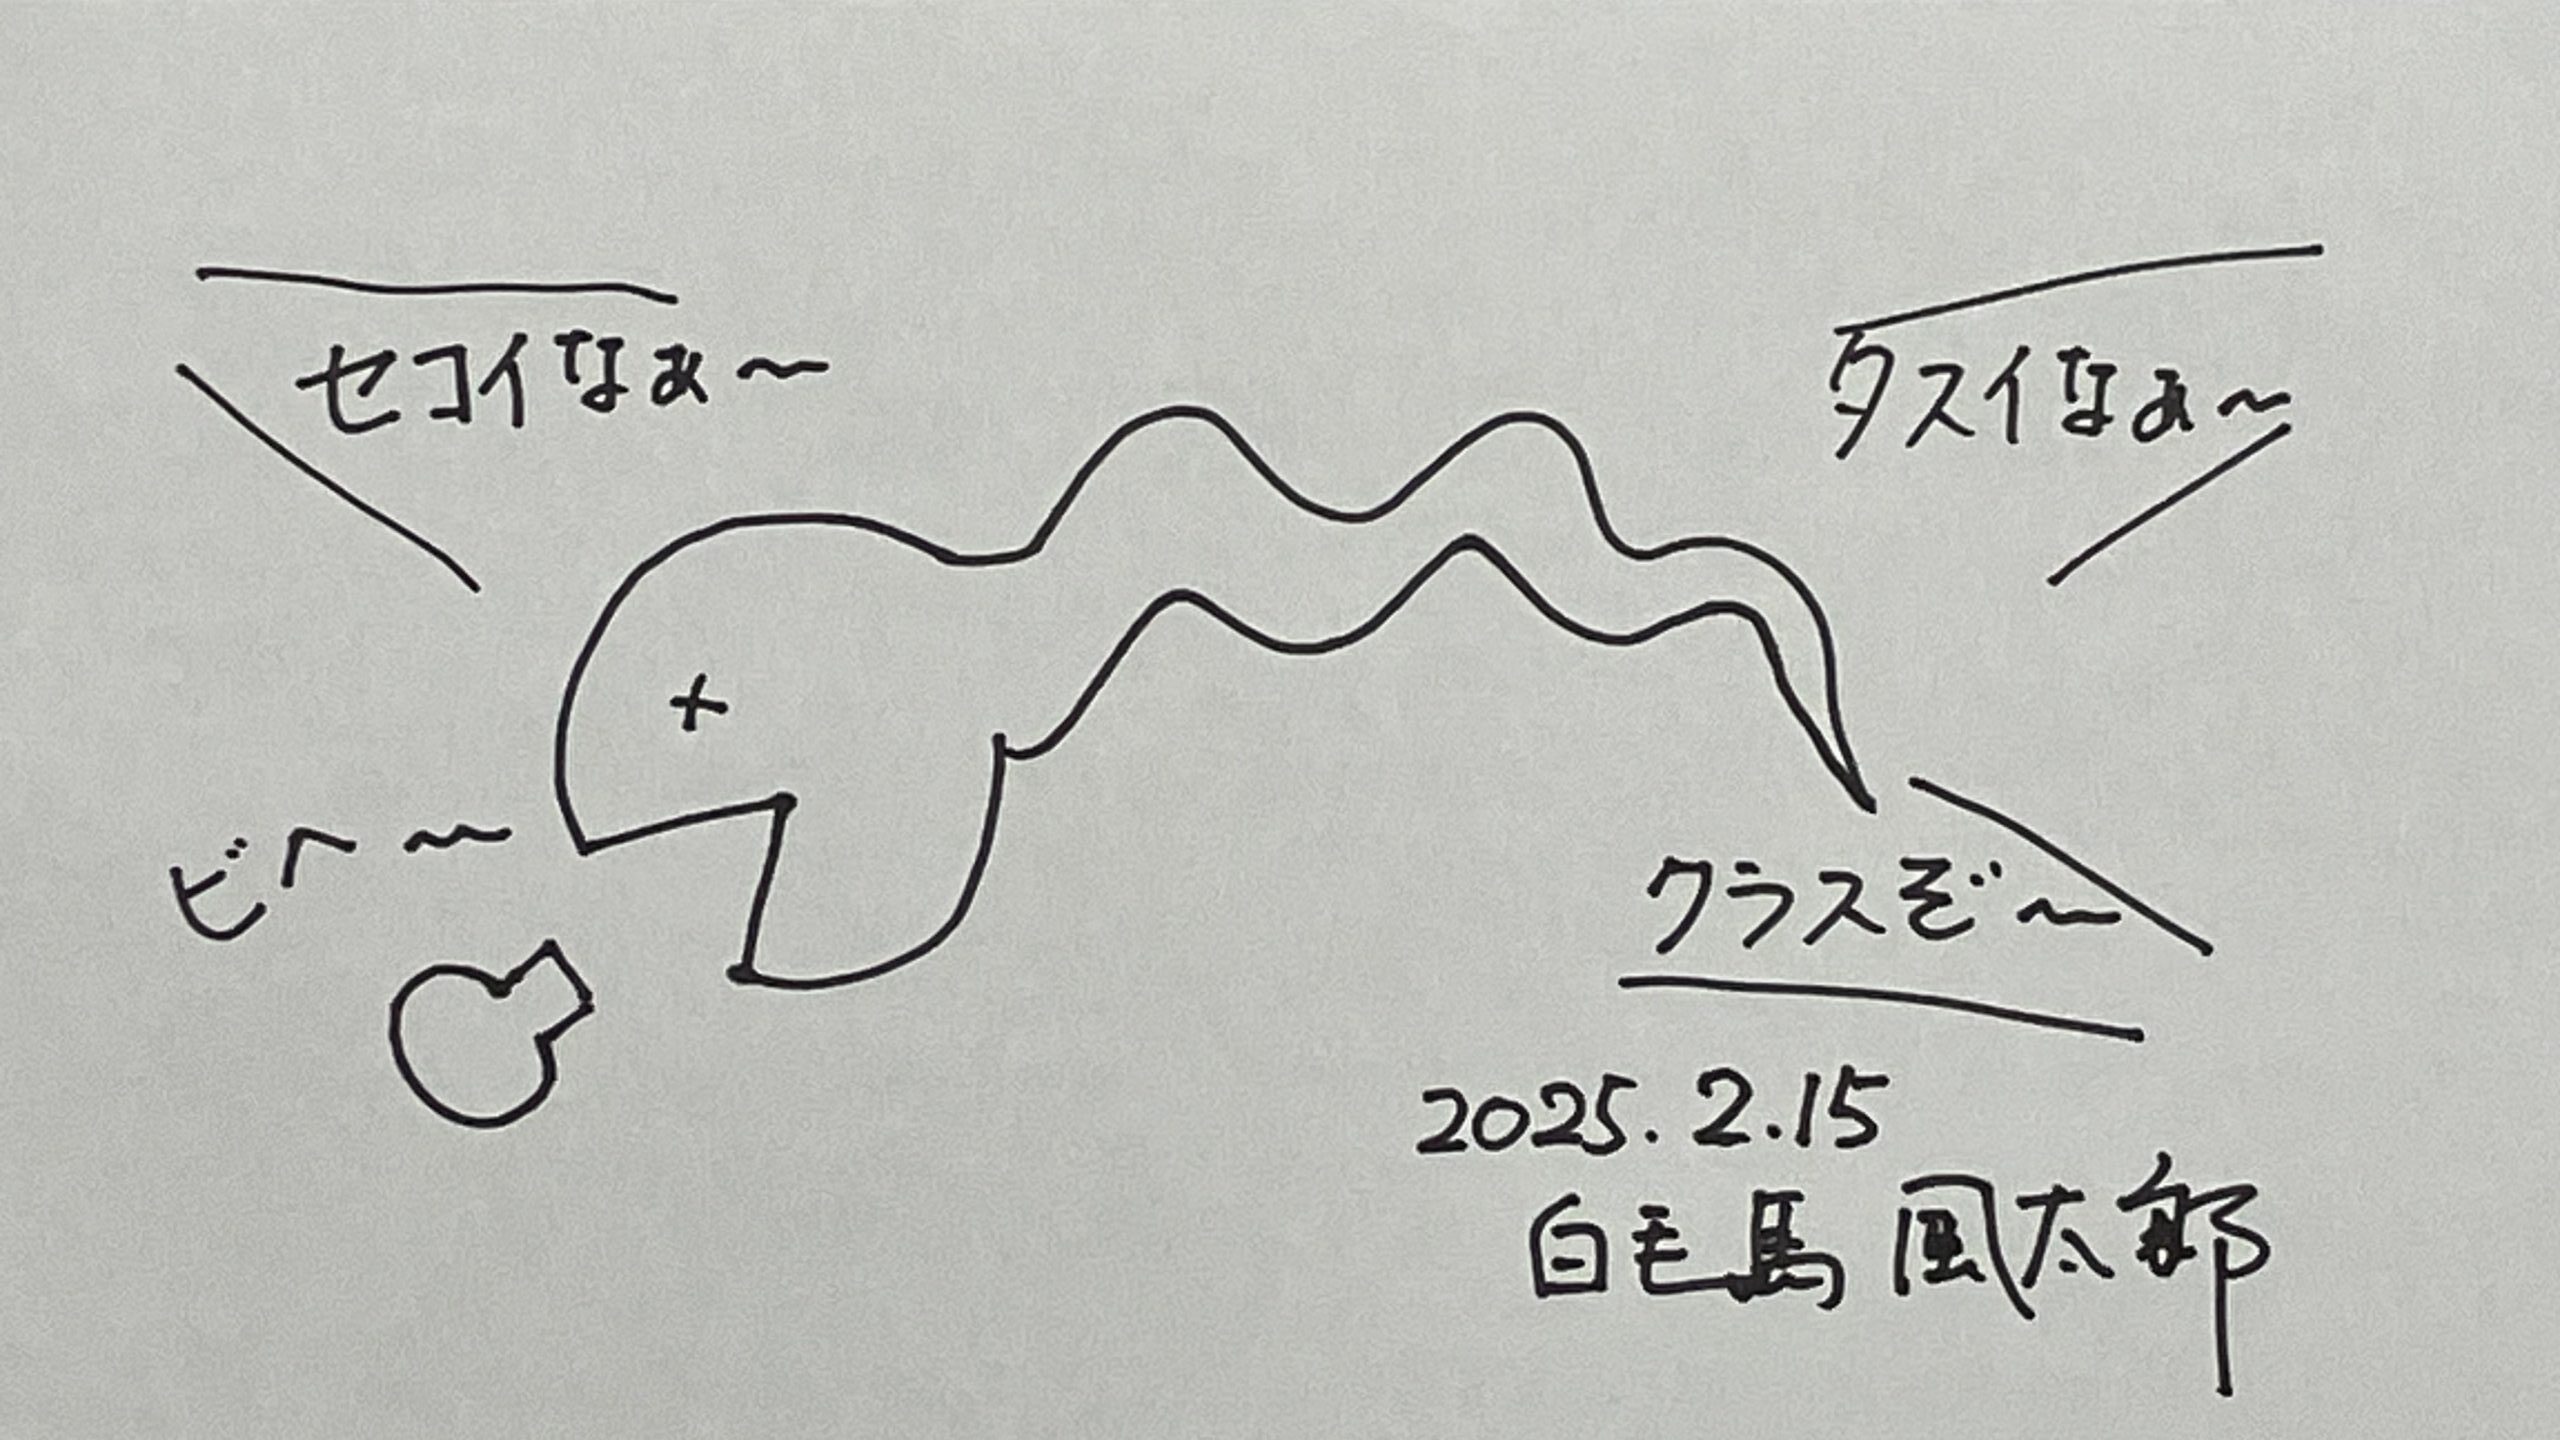 セコイなぁ〜
タスイなぁ〜
ビヘ〜
クラスぞ〜
2025.2.15
白毛馬 風太郎